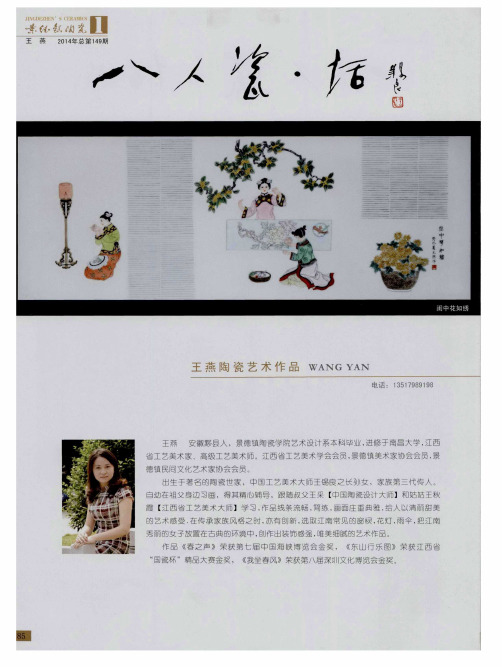 JINGDEZHEN'S CERAMICS
景德镇陶瓷 1
王 燕 2014年总第149期
八人瓷·话
闺中花如绣
王燕陶瓷艺术作品 WANG YAN
电话：13517989198
王燕 安徽黟县人，景德镇陶瓷学院艺术设计系本科毕业，进修于南昌大学，江西
省工艺美术家、高级工艺美术师。江西省工艺美术学会会员，景德镇美术家协会会员，景
德镇民间文化艺术家协会会员。
出生于著名的陶瓷世家，中国工艺美术大师王锡良之长孙女，家族第三代传人。
自幼在祖父身边习画，得其精心辅导，跟随叔父王采【中国陶瓷设计大师】和姑姑王秋
霞【江西省工艺美术大师】学习，作品线条流畅，写练，画面庄重典雅，给人以清丽甜美
的艺术感受，在传承家族风格之时，亦有创新，选取江南常见的窗棂，花灯，雨伞，把江南
秀丽的女子放置在古典的环境中，创作出装饰感强，唯美细腻的艺术作品。
作品《春之声》荣获第七届中国海峡博览会金奖，《东山行乐图》荣获江西省
“国瓷杯”精品大赛金奖，《我坐春风》荣获第八届深圳文化博览会金奖。
85